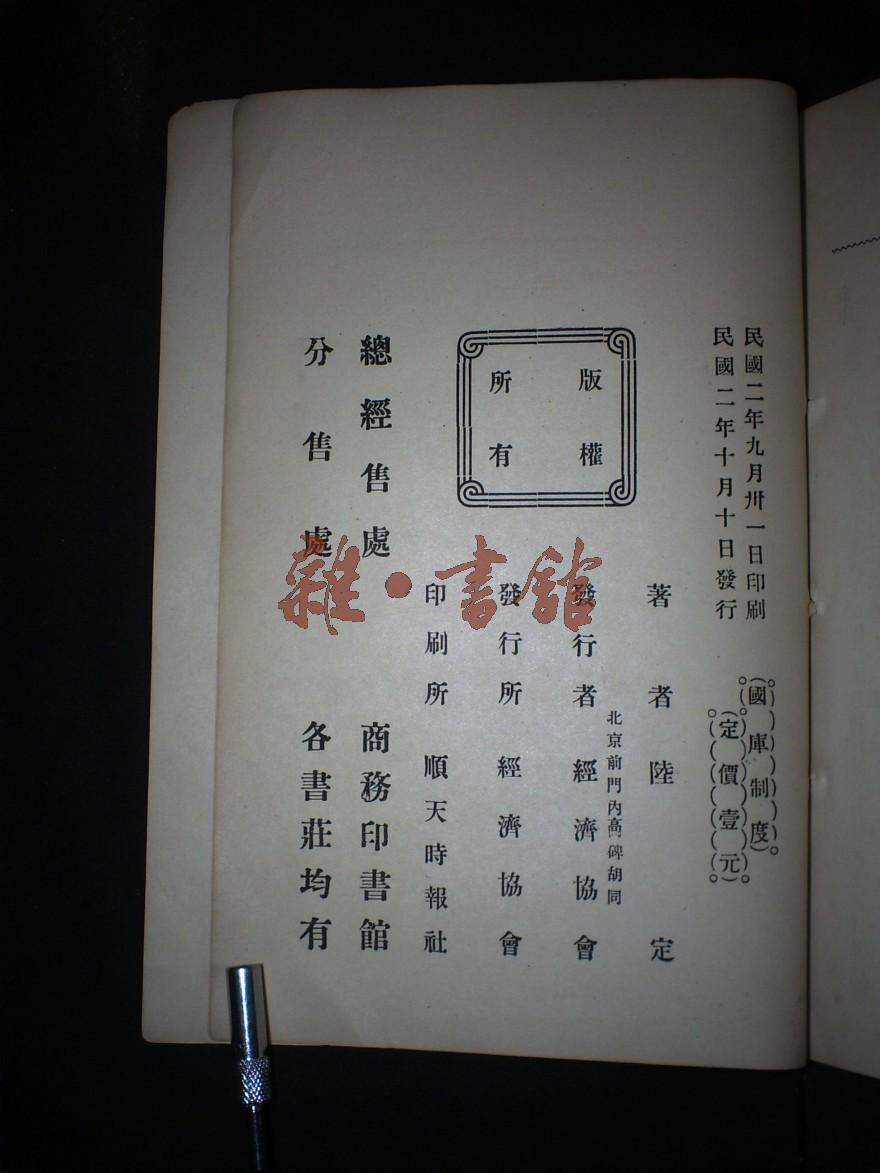 民國二年九月卅一日印刷
民國二年十月十日發行
(國庫制度)
(定價壹元)
版權
所有
著者 陸定
北京前門內高碑胡同
發行者 經濟協會
發行所 經濟協會
印刷所 順天時報社
總經售處 商務印書館
分售處 各書莊均有
雜·書館